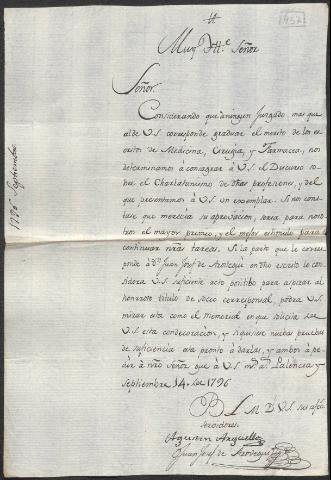 1437
Muy Ille Señor
Señor.
Considerando que a ningun Juzgado mas que
al de V.S. corresponde graduar el merito de los es
critos de Medicina, Cirugia, y Farmacia, nos
determinamos à consagrar à V.S. el Discurso so
bre el Charlatanismo de dhas profesiones, y del
que presentamos à V.S. un exemplar. Si nos cons
tase que merecia su aprobacion, seria para noso
tros el mayor premio, y el mejor estimulo para
continuar nras tareas. Si la parte que le corres
ponde à Dn Juan Josef de Arostegui en dho escrito le con
sidera V.S. suficiente acto positibo para aspirar al
honroso titulo de socio corresponsal, podra V.S.
mirar esta como el Memorial en que solicita de
V.S. esta condecoracion, y si quisiere nuebas pruebas
de suficiencia esta pronto à darlas, y ambos à pe
dir à nro Señor que à V.S. ms as Palencia y
Septiembre 14 de 1796
B L M. D V.S. sus afto
servidores
Agustin Arguello
Juan Josef de Arostegui
1796 Septiembre